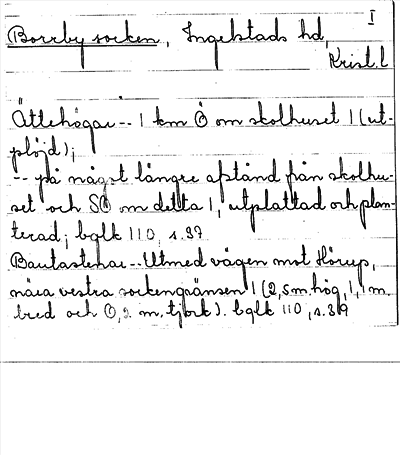 I
Borrby socken, Ingelstads hd,
Krist. l
Ättehögar -- 1 km Ö om skolhuset 1 (ut-
plöjd);
-- på något längre afstånd från skolhu-
set och SÖ om detta 1, utplattad och plan-
terad; bglk 110, s. 37
Bautastenar -- Utmed vägen mot Hörup,
nära vestra sockengränsen 1 (2,5 m. hög, 1,1 m.
bred och 0,2 m. tjock). bglk 110, s. 39